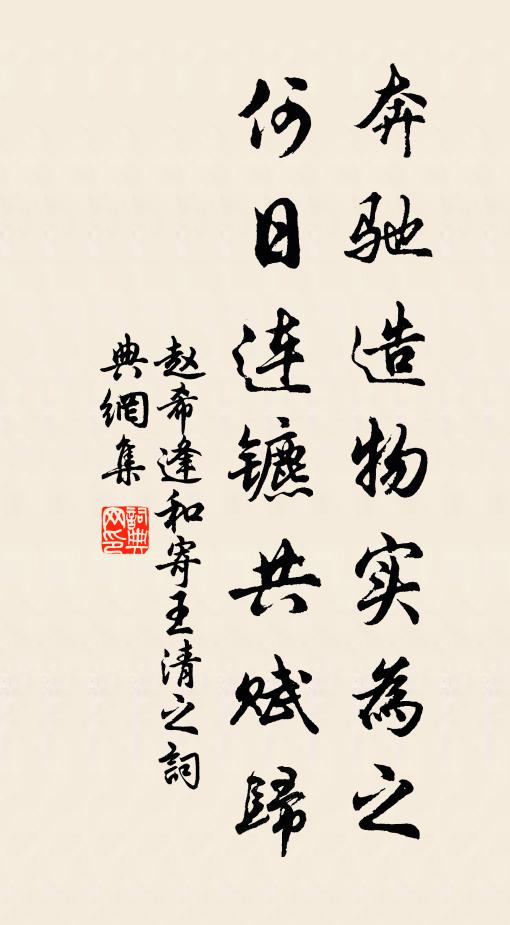 奔驰造物实為之
何日连镳共赋歸
赵希逢和寄王清之詞
典網集
詞典网印